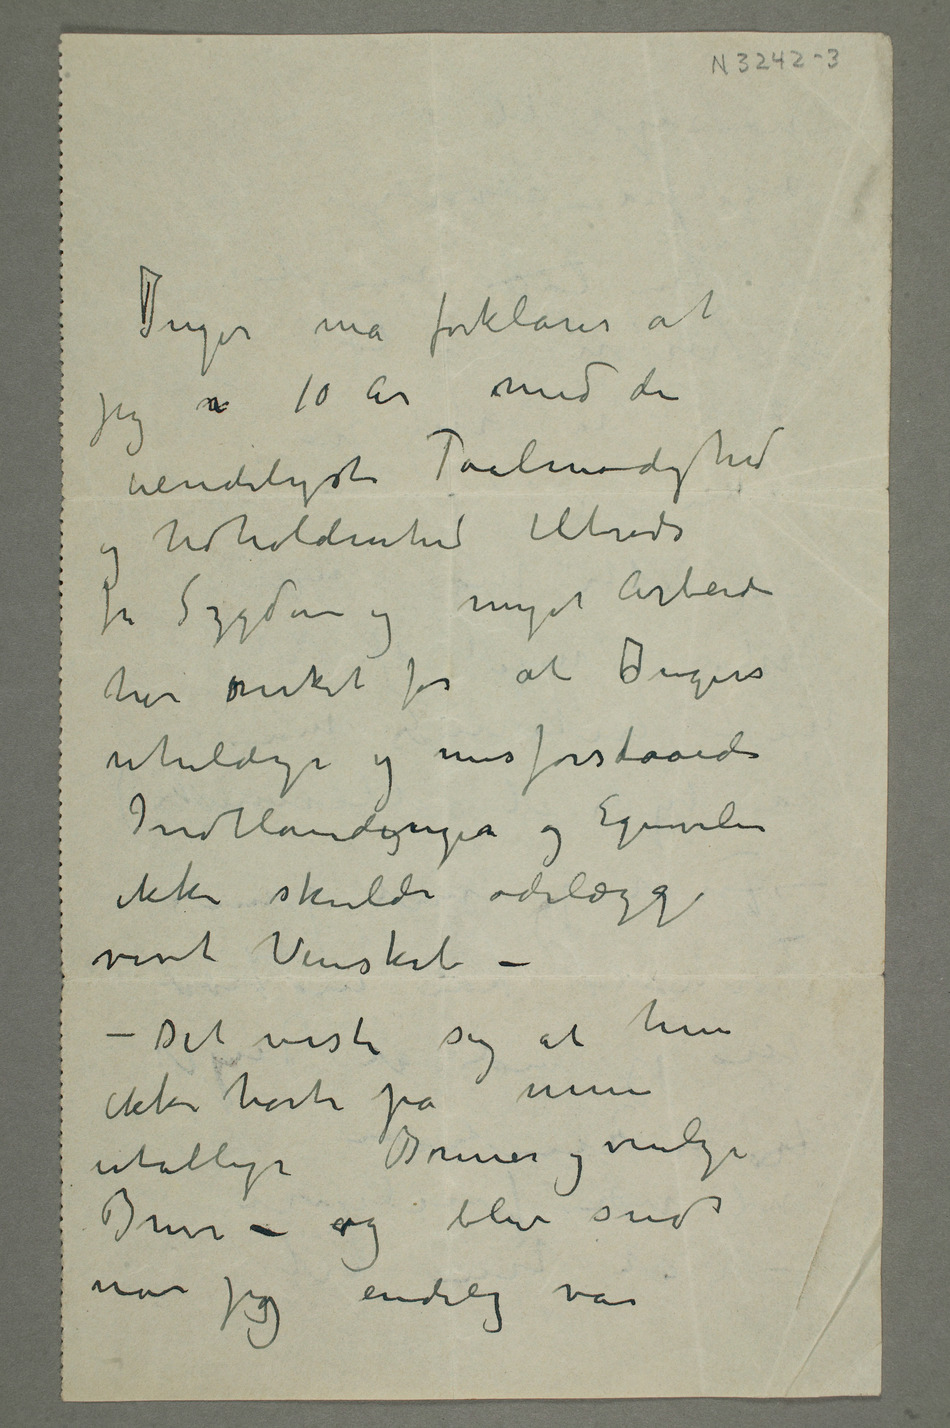 N 3242-3
Inger må forklares at
jeg i 10 år med den
uendeligste Taalmodighed
og Udholdenhed tiltrods
for Sygdom og meget Arbeide
har virket for at Ingers
uheldige og misforstaaede
Indblandinger og Egenvilie
ikke skulde ødelægge
vort Venskab –
– Det viste sig at hun
ikke hørte på mine
utallige Bønner og venlige
– og blev sindt
når jeg endelig var